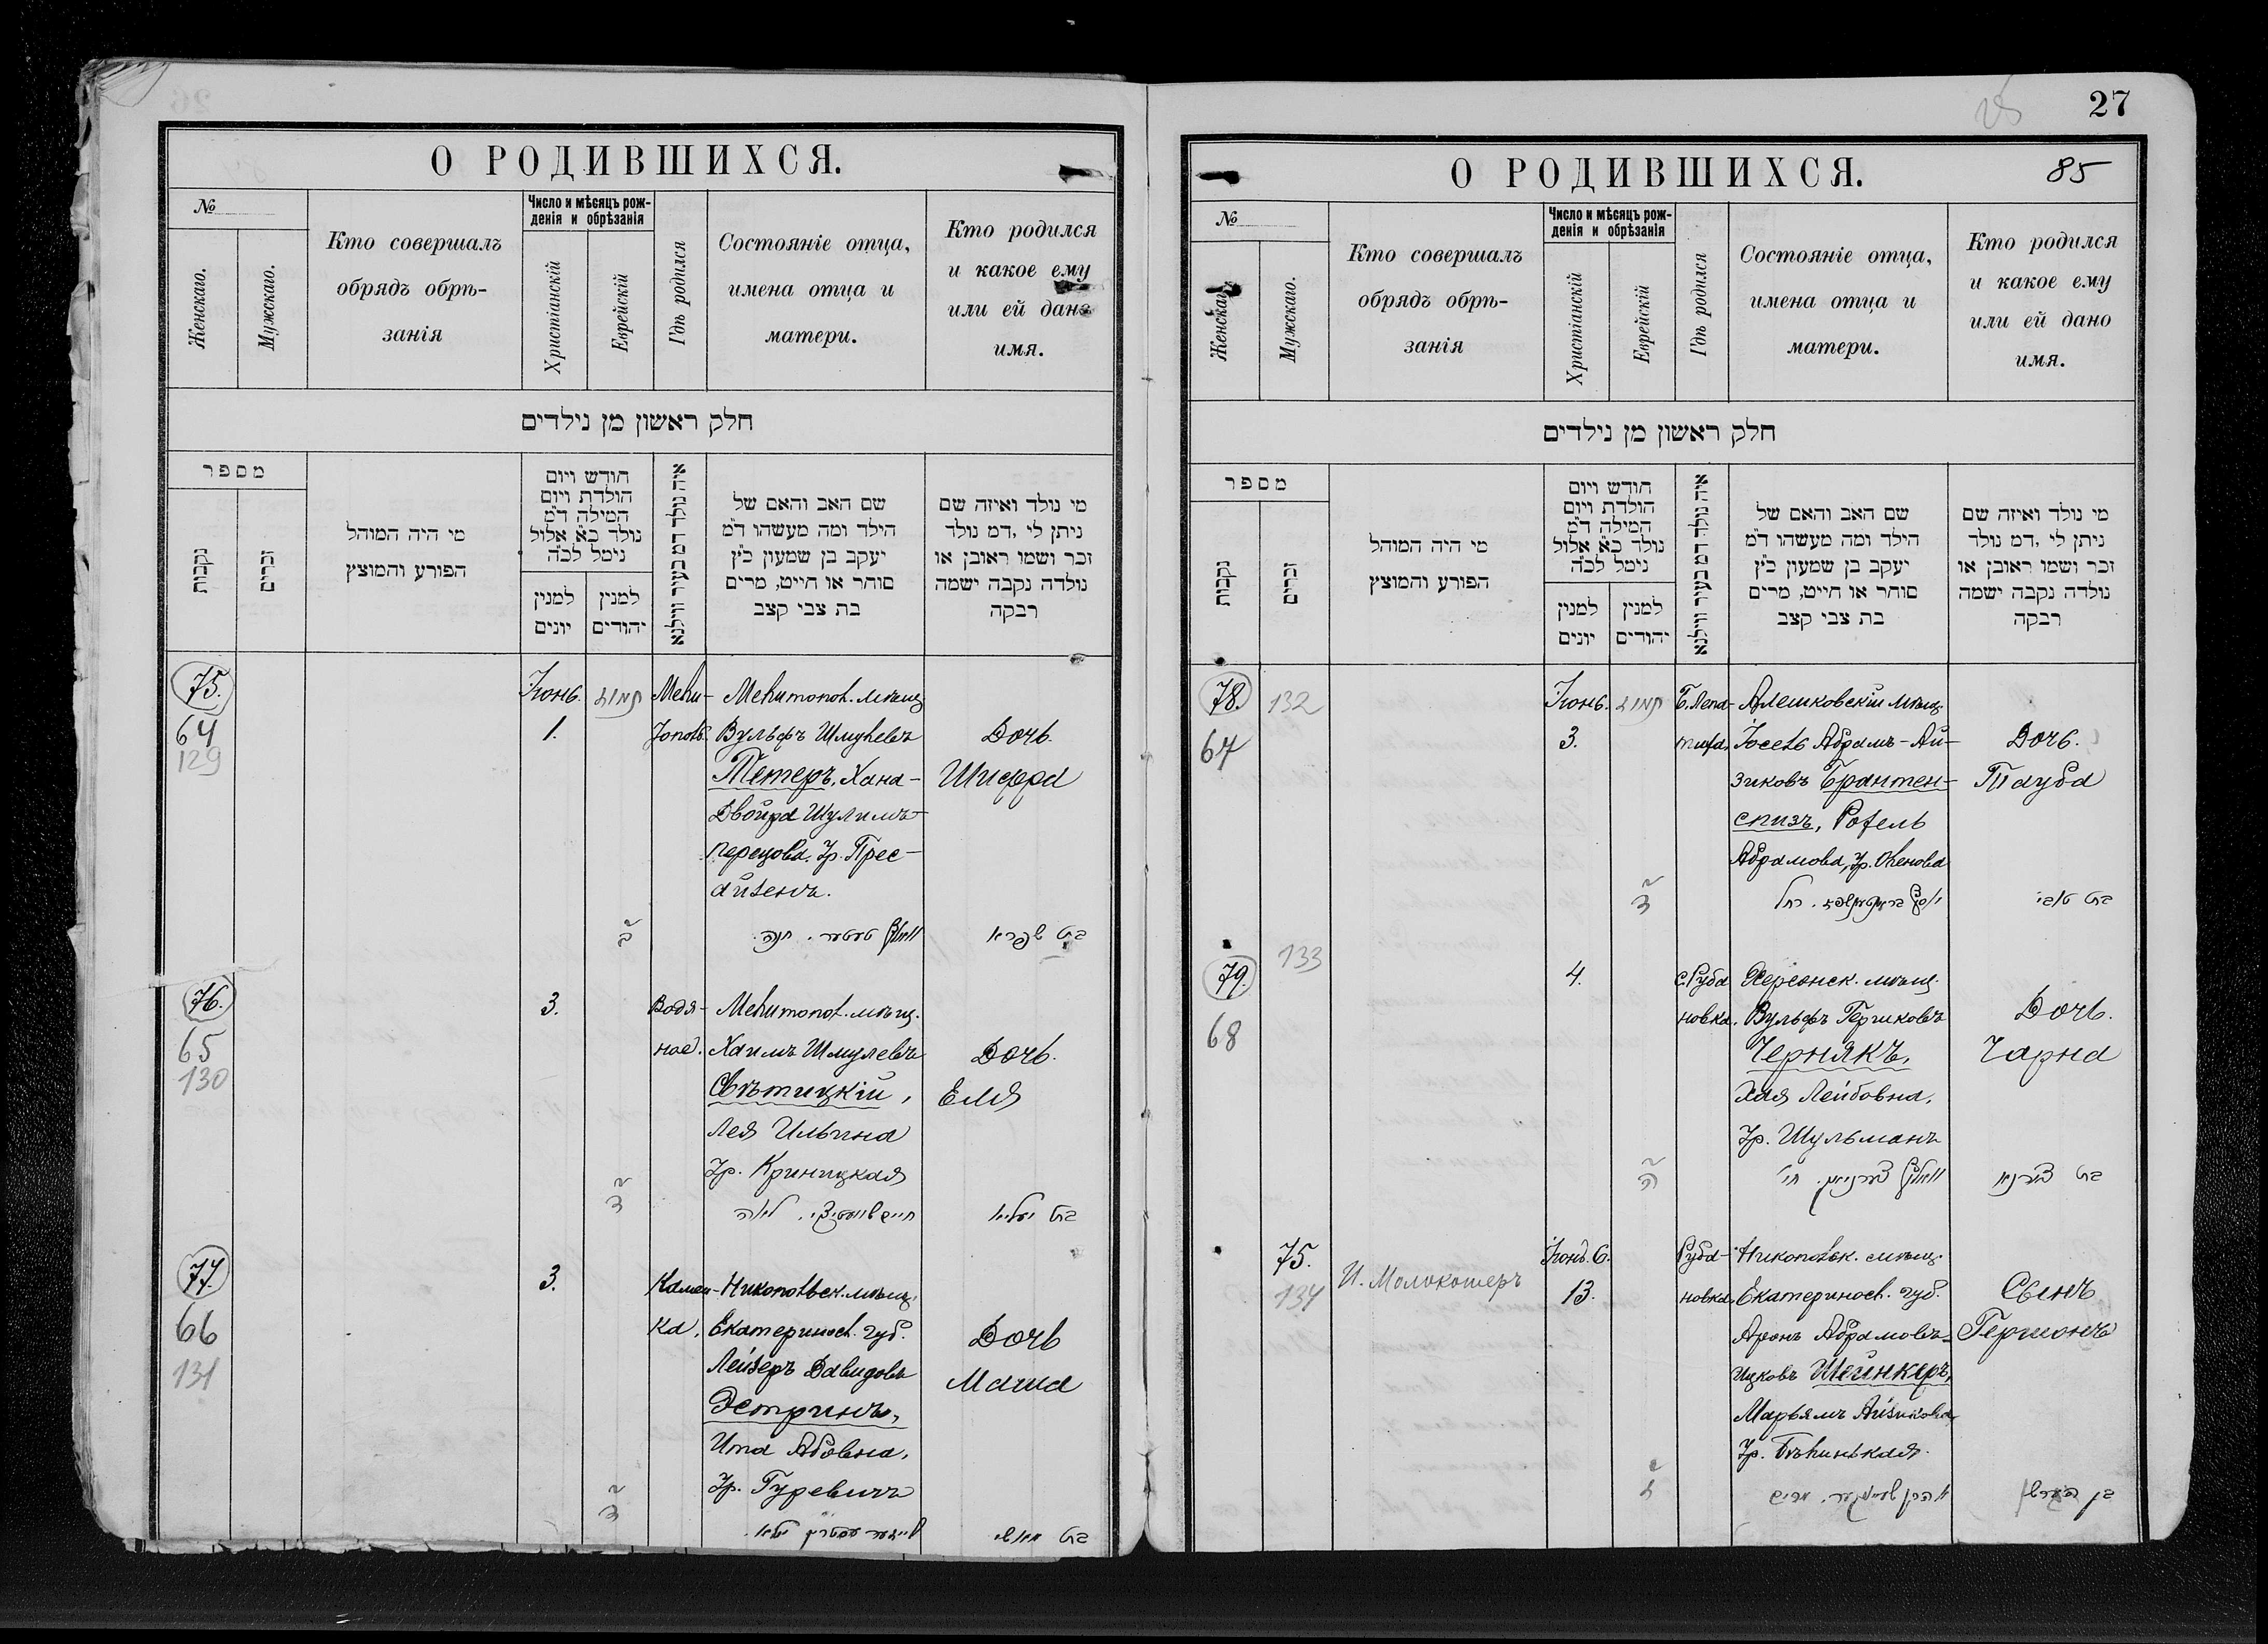 О РОДИВШИХСЯ.
№
Женскаго.
Мужскаго.
Кто совершалъ
обрядъ обрѣ-
занія
Число и мѣсяцъ рож-
денія и обрѣзанія
Христіанскій
Еврейскій
Гдѣ родился
Состояніе отца,
имена отца и
матери.
Кто родился
и какое ему
или ей дано
имя.
חלק ראשון מן נילדים
מספר
נקבות
זכרים
מי היה המוהל
הפורע והמוצץ
חודש ויום
הולדת ויום
המילה ד״מ
נולד בא אלול
נימל לכ״ה
למנין
יונים
למנין
יהודים
איה נולד דמ בעיר ווילנא
שם האב והאם של
הילד ומה מעשהו ד״מ
יעקב בן שמעון כ״ץ
סוחר או חייט, מרים
בת צבי קצב
מי נולד ואיזה שם
ניתן לי ,דמ נולד
זכר ושמו ראובן או
נולדה נקבה ישמה
רבקה
75.
64
129
Іюнь.
1.
תמוז
יב
Мели-
тополь.
Мелитопол. мѣщ.
Вульфъ Шмулевъ
Тетеръ, Хана-
Двойра Шулимъ-
Перецова, Ур. Прес-
айзенъ.
וואלף טעטער. חנה.
Дочь.
Шифра
בת שפרא
76.
65
130
3.
יד
Водя-
ное.
Мелитопол. мѣщ.
Хаимъ Шмулевъ
Свѣтицкій,
Лея Ильина
Ур. Криницкая
חיים שוועטיצקי. לאה
Дочь.
Еля
בת יעליא
77.
66
131
3.
יד
Камен-
ка.
Никопольск. мѣщ.
Екатеринос. губ.
Лейзеръ Давидовъ
Эстринъ,
Ита Абовна,
Ур. Гуревичъ
לייזער עסטרין. יטא.
Дочь
Маша
בת מאשי
27
85
О РОДИВШИХСЯ.
№
Женскаго.
Мужскаго.
Кто совершалъ
обрядъ обрѣ-
занія
Число и мѣсяцъ рож-
денія и обрѣзанія
Христіанскій
Еврейскій
Гдѣ родился
Состояніе отца,
имена отца и
матери.
Кто родился
и какое ему
или ей дано
имя.
חלק ראשון מן נילדים
מספר
נקבות
זכרים
מי היה המוהל
הפורע והמוצץ
חודש ויום
הולדת ויום
המילה ד״מ
נולד בא אלול
נימל לכ״ה
למנין
יונים
למנין
יהודים
איה נולד דמ בעיר ווילנא
שם האב והאם של
הילד ומה מעשהו ד״מ
יעקב בן שמעון כ״ץ
סוחר או חייט, מרים
בת צבי קצב
מי נולד ואיזה שם
ניתן לי ,דמ נולד
זכר ושמו ראובן או
נולדה נקבה ישמה
רבקה
78.
132
67
Іюнь.
3.
תמוז
יד
Б. Лепа-
тиха,
Алешковскій мѣщ.
Іосель Абрамъ-Ай-
зиковъ Брантен-
спизъ, Рохель
Абрамова, Ур.
Дочь.
Тауба
בת טובי
79.
133
68
4.
с. Руба
новка.
Херсонск. мѣщ.
Вульфъ Гершковъ
Чернякъ,
Хая Лейбовна,
Ур. Шульманъ
וואלף צערניאק. חי׳
Дочь.
Чарна
בת צערנא
75.
134
И. Молокошеръ
Іюнь 6.
13.
Руба-
новка,
Никопольск. мѣщ.
Екатеринос. губ.
Аронъ Абрамовъ-
Ицковъ Шейнкеръ,
Марьямъ Айзикова,
Ур.
אהרן שיינקער. מרים
Сынъ
Гершонъ
בן הערשון